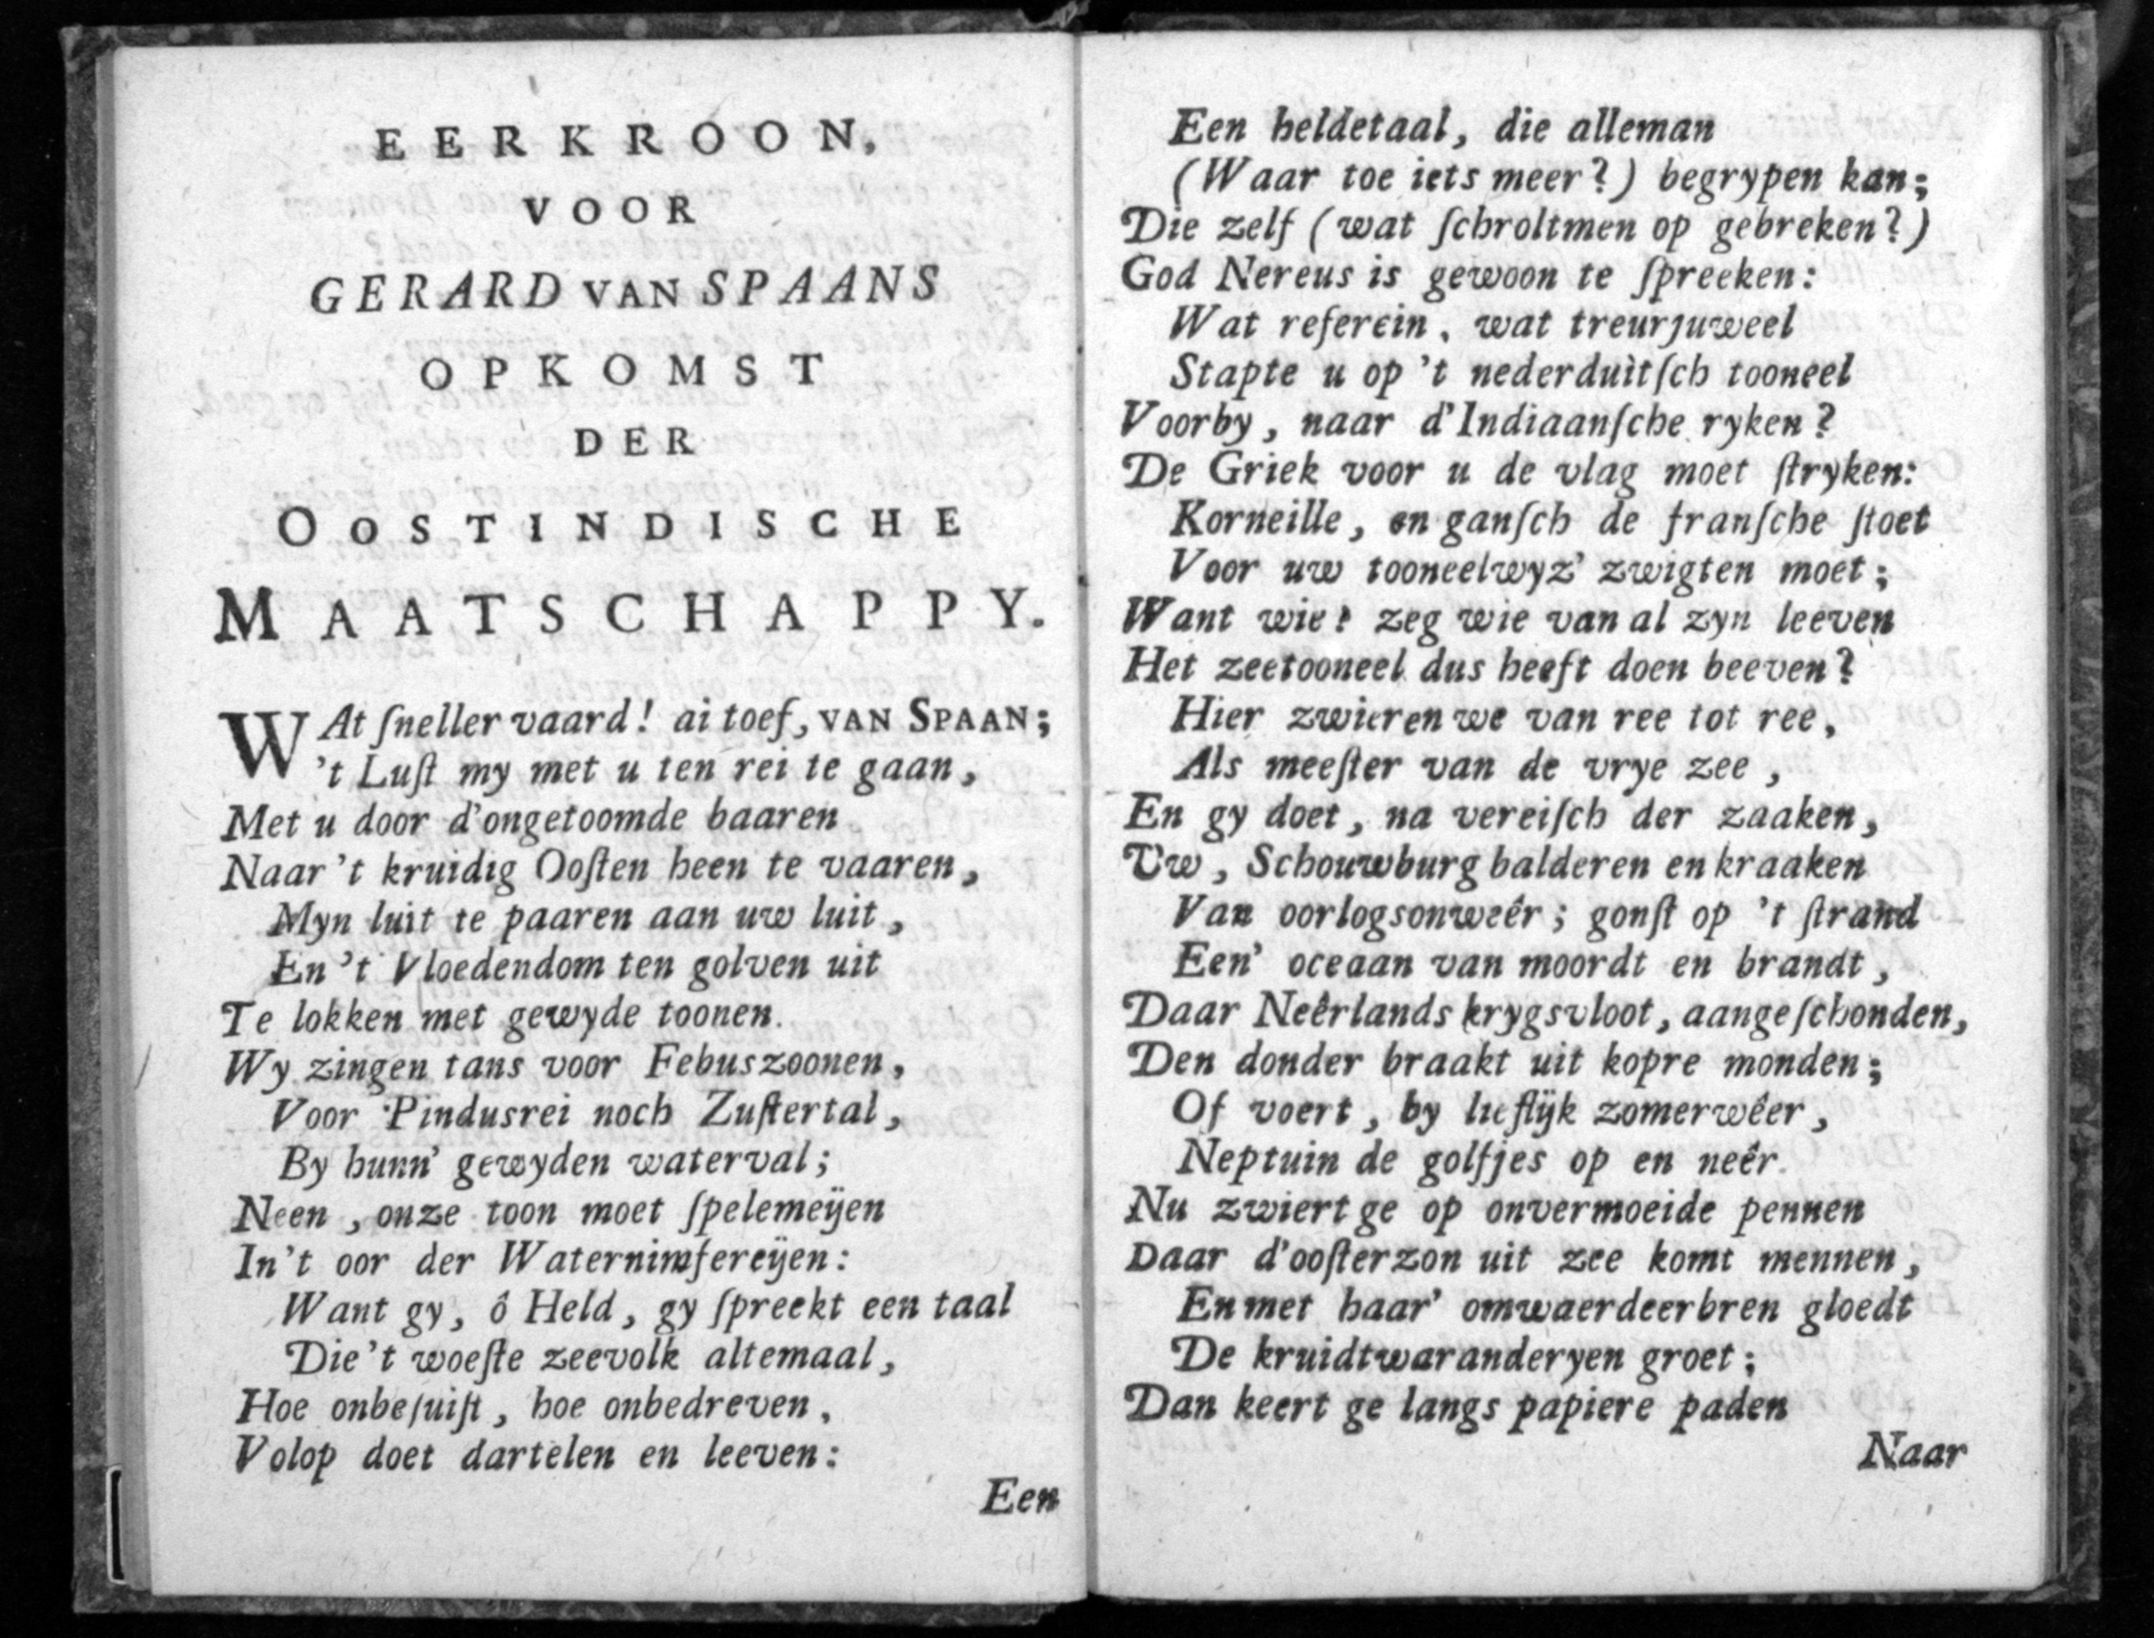 EERKROON,
VOOR
GERARD VAN SPAANS
OPKOMST
DER
OOSTINDISCHE
MAATSCHAPPY.
WAt ſneller vaard! ai toef, VAN SPAAN;
't Luſt my met u ten rei te gaan,
Met u door d'ongetoomde baaren
Naar 't kruidig Ooſten heen te vaaren,
Myn luit te paaren aan uw luit,
En 't Vloedendom ten golven uit
Te lokken met gewyde toonen.
Wy zingen tans voor Febuszoonen,
Voor Pindusrei noch Zuſtertal,
By hunn' gewyden waterval;
Neen, onze toon moet ſpelemeijen
In 't oor der Waternimfereijen:
Want gy, ô Held, gy ſpreekt een taal
Die 't woeſte zeevolk altemaal,
Hoe onbeſuiſt, hoe onbedreven,
Volop doet dartelen en leeven:
Een
Een heldetaal, die alleman
(Waar toe iets meer?) begrypen kan;
Die zelf (wat ſchroltmen op gebreken?)
God Nereus is gewoon te ſpreeken:
Wat referein, wat treurjuweel
Stapte u op 't nederduitſch tooneel
Voorby, naar d'Indiaanſche ryken?
De Griek voor u de vlag moet ſtryken:
Korneille, en ganſch de franſche ſtoet
Voor uw tooneelwyz' zwigten moet;
Want wie? zeg wie van al zyn leeven
Het zeetooneel dus heeft doen beeven?
Hier zwieren we van ree tot ree,
Als meeſter van de vrye zee,
En gy doet, na vereiſch der zaaken,
Uw, Schouwburg balderen en kraaken
Van oorlogsonweêr; gonſt op 't ſtrand
Een' oceaan van moordt en brandt,
Daar Neêrlands krygsvloot, aangeſchonden,
Den donder braakt uit kopre monden;
Of voert, by lieflijk zomerwêer,
Neptuin de golfjes op en neêr.
Nu zwiert ge op onvermoeide pennen
Daar d'ooſterzon uit zee komt mennen,
En met haar' omwaerdeerbren gloedt
De kruidtwaranderyen groet;
Dan keert ge langs papiere paden
Naar